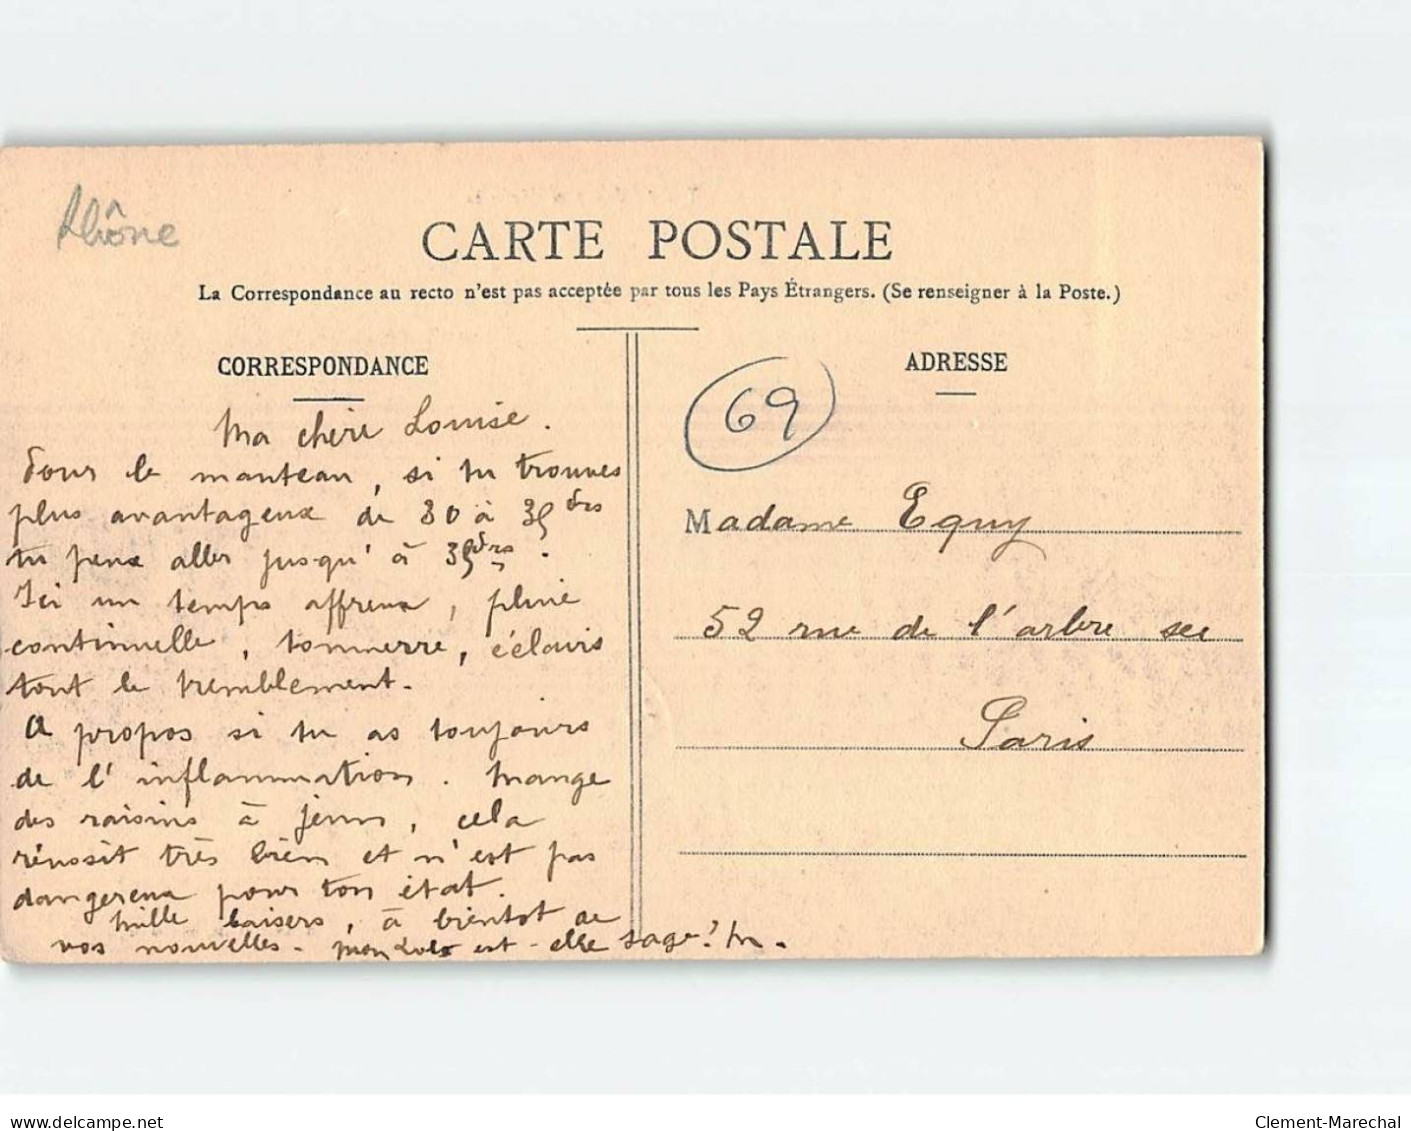 Rhône
CARTE POSTALE
La Correspondance au recto n'est pas acceptée par tous les Pays Étrangers. (Se renseigner à la Poste.)
CORRESPONDANCE
Ma chère Louise.
Pour le manteau, si tu trouves
plus avantageux de 30 à 35 frs
tu peux aller jusqu'à 35 frs.
Ici un temps affreux, pluie
continuelle, tonnerre, éclairs
tout le tremblement.
A propos si tu as toujours
de l'inflammation. Mange
des raisins à jeun, cela
réussit très bien et n'est pas
dangereux pour ton état.
Mille baisers, à bientôt de
vos nouvelles. est-elle sage? M.
ADRESSE
69
Madame Equy
52 rue de l'arbre sec
Paris
www.delcampe.net
Clement-Marechal